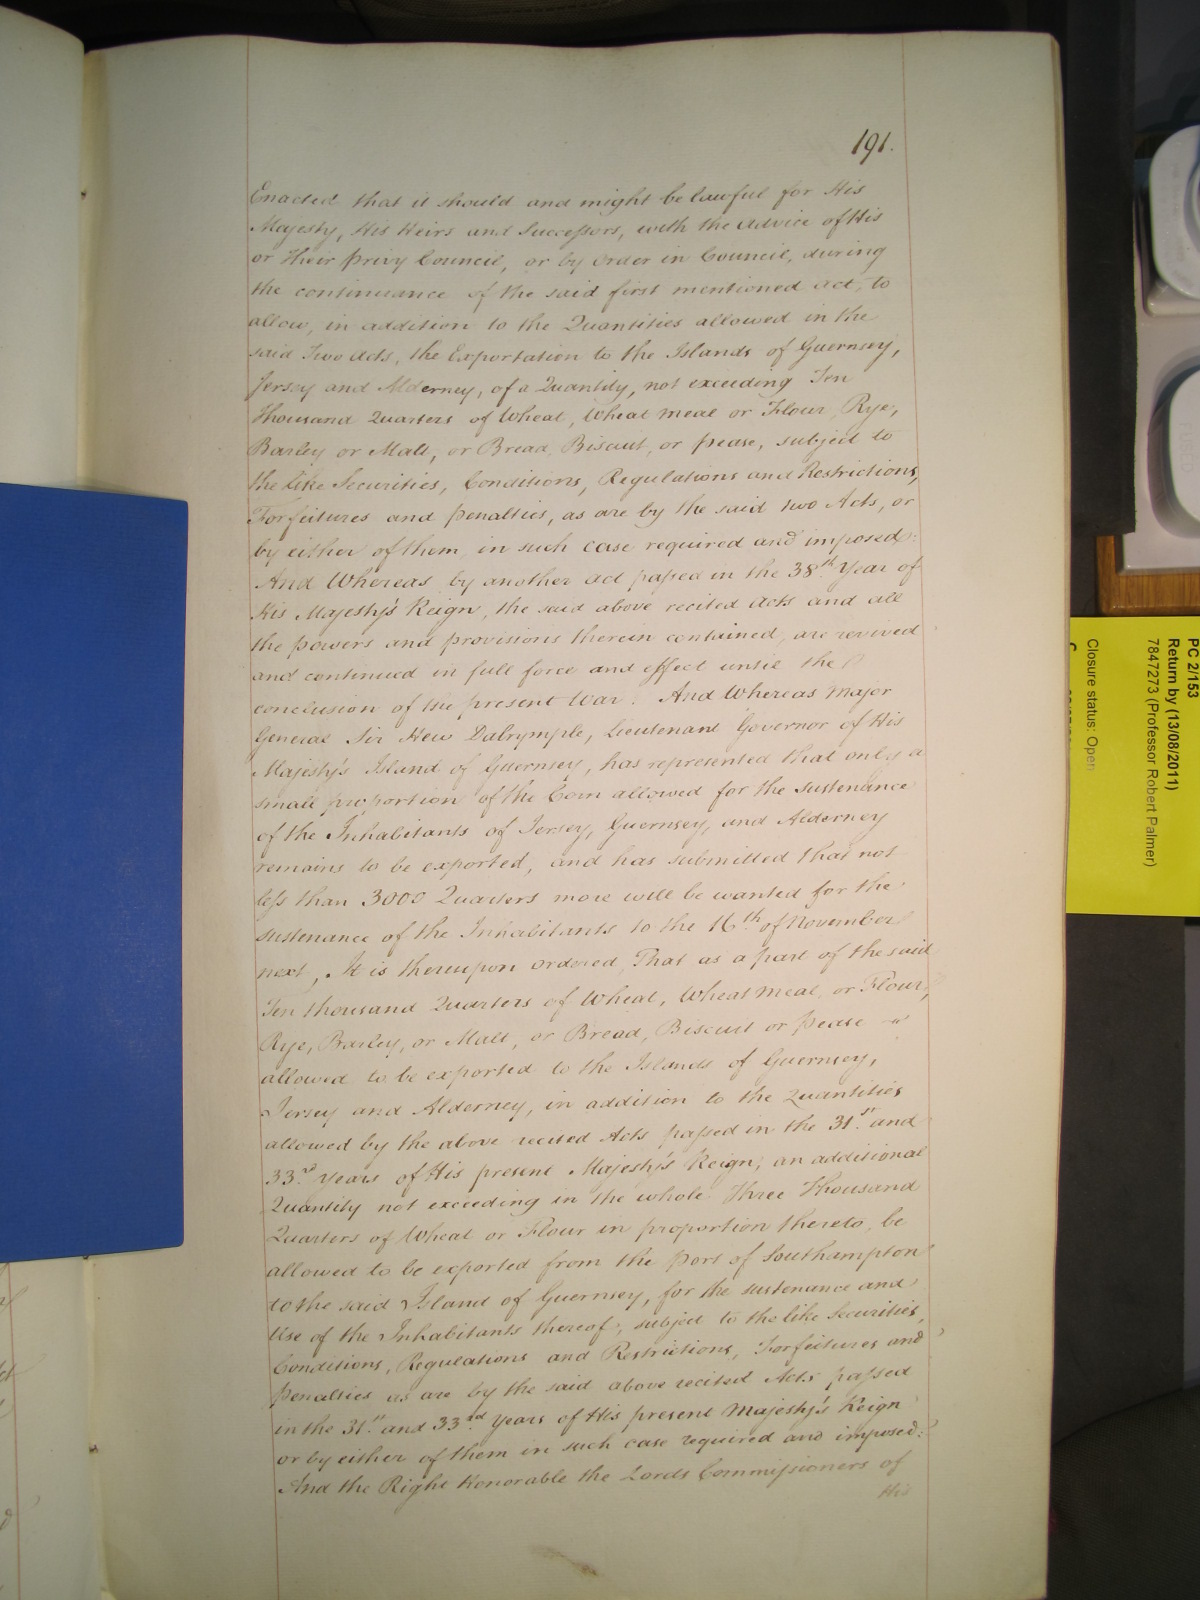 191.
Enacted that it should and might be lawful for His
Majesty, His Heirs and Successors, with the Advice of His
or Their Privy Council, or by Order in Council, during
the continuance of the said first mentioned Act, to
allow, in addition to the Quantities allowed in the
said Two Acts, the Exportation to the Islands of Guernsey,
Jersey and Alderney, of a Quantity, not exceeding Ten
Thousand Quarters of Wheat, Wheat Meal or Flour, Rye,
Barley or Malt, or Bread, Biscuit, or pease, subject to
the like Securities, Conditions, Regulations and Restrictions,
Forfeitures and penalties, as are by the said two Acts, or
by either of them in such case required and imposed:
And Whereas by another Act passed in the 38th Year of
His Majesty's Reign, the said above recited Acts and all
the powers and provisions therein contained, are revived
and continued in full force and effect until the
conclusion of the present War. And Whereas Major
General Sir Hew Dalrymple, Lieutenant Governor of His
Majesty's Island of Guernsey, has represented that only a
small proportion of the Corn allowed for the sustenance
of the Inhabitants of Jersey, Guernsey, and Alderney
remains to be exported, and has submitted that not
less than 3000 Quarters more will be wanted for the
sustenance of the Inhabitants to the 16th of November
next, It is thereupon ordered, That as a part of the said
Ten thousand Quarters of Wheat, Wheat Meal, or Flour,
Rye, Barley, or Malt, or Bread, Biscuit or pease
allowed to be exported to the Islands of Guernsey,
Jersey and Alderney, in addition to the Quantities
allowed by the above recited Acts passed in the 31st and
33rd Years of His present Majesty's Reign, an additional
Quantity not exceeding in the whole Three Thousand
Quarters of Wheat or Flour in proportion thereto, be
allowed to be exported from the Port of Southampton
to the said Island of Guernsey, for the sustenance and
Use of the Inhabitants thereof, subject to the like Securities,
Conditions, Regulations and Restrictions, Forfeitures and
penalties as are by the said above recited Acts passed
in the 31st and 33rd Years of His present Majesty's Reign
or by either of them in such case required and imposed:
And the Right Honorable the Lords Commissioners of
His
PC 2/153
Return by (13/08/2011)
7847273 (Professor Robert Palmer)
Closure status: Open